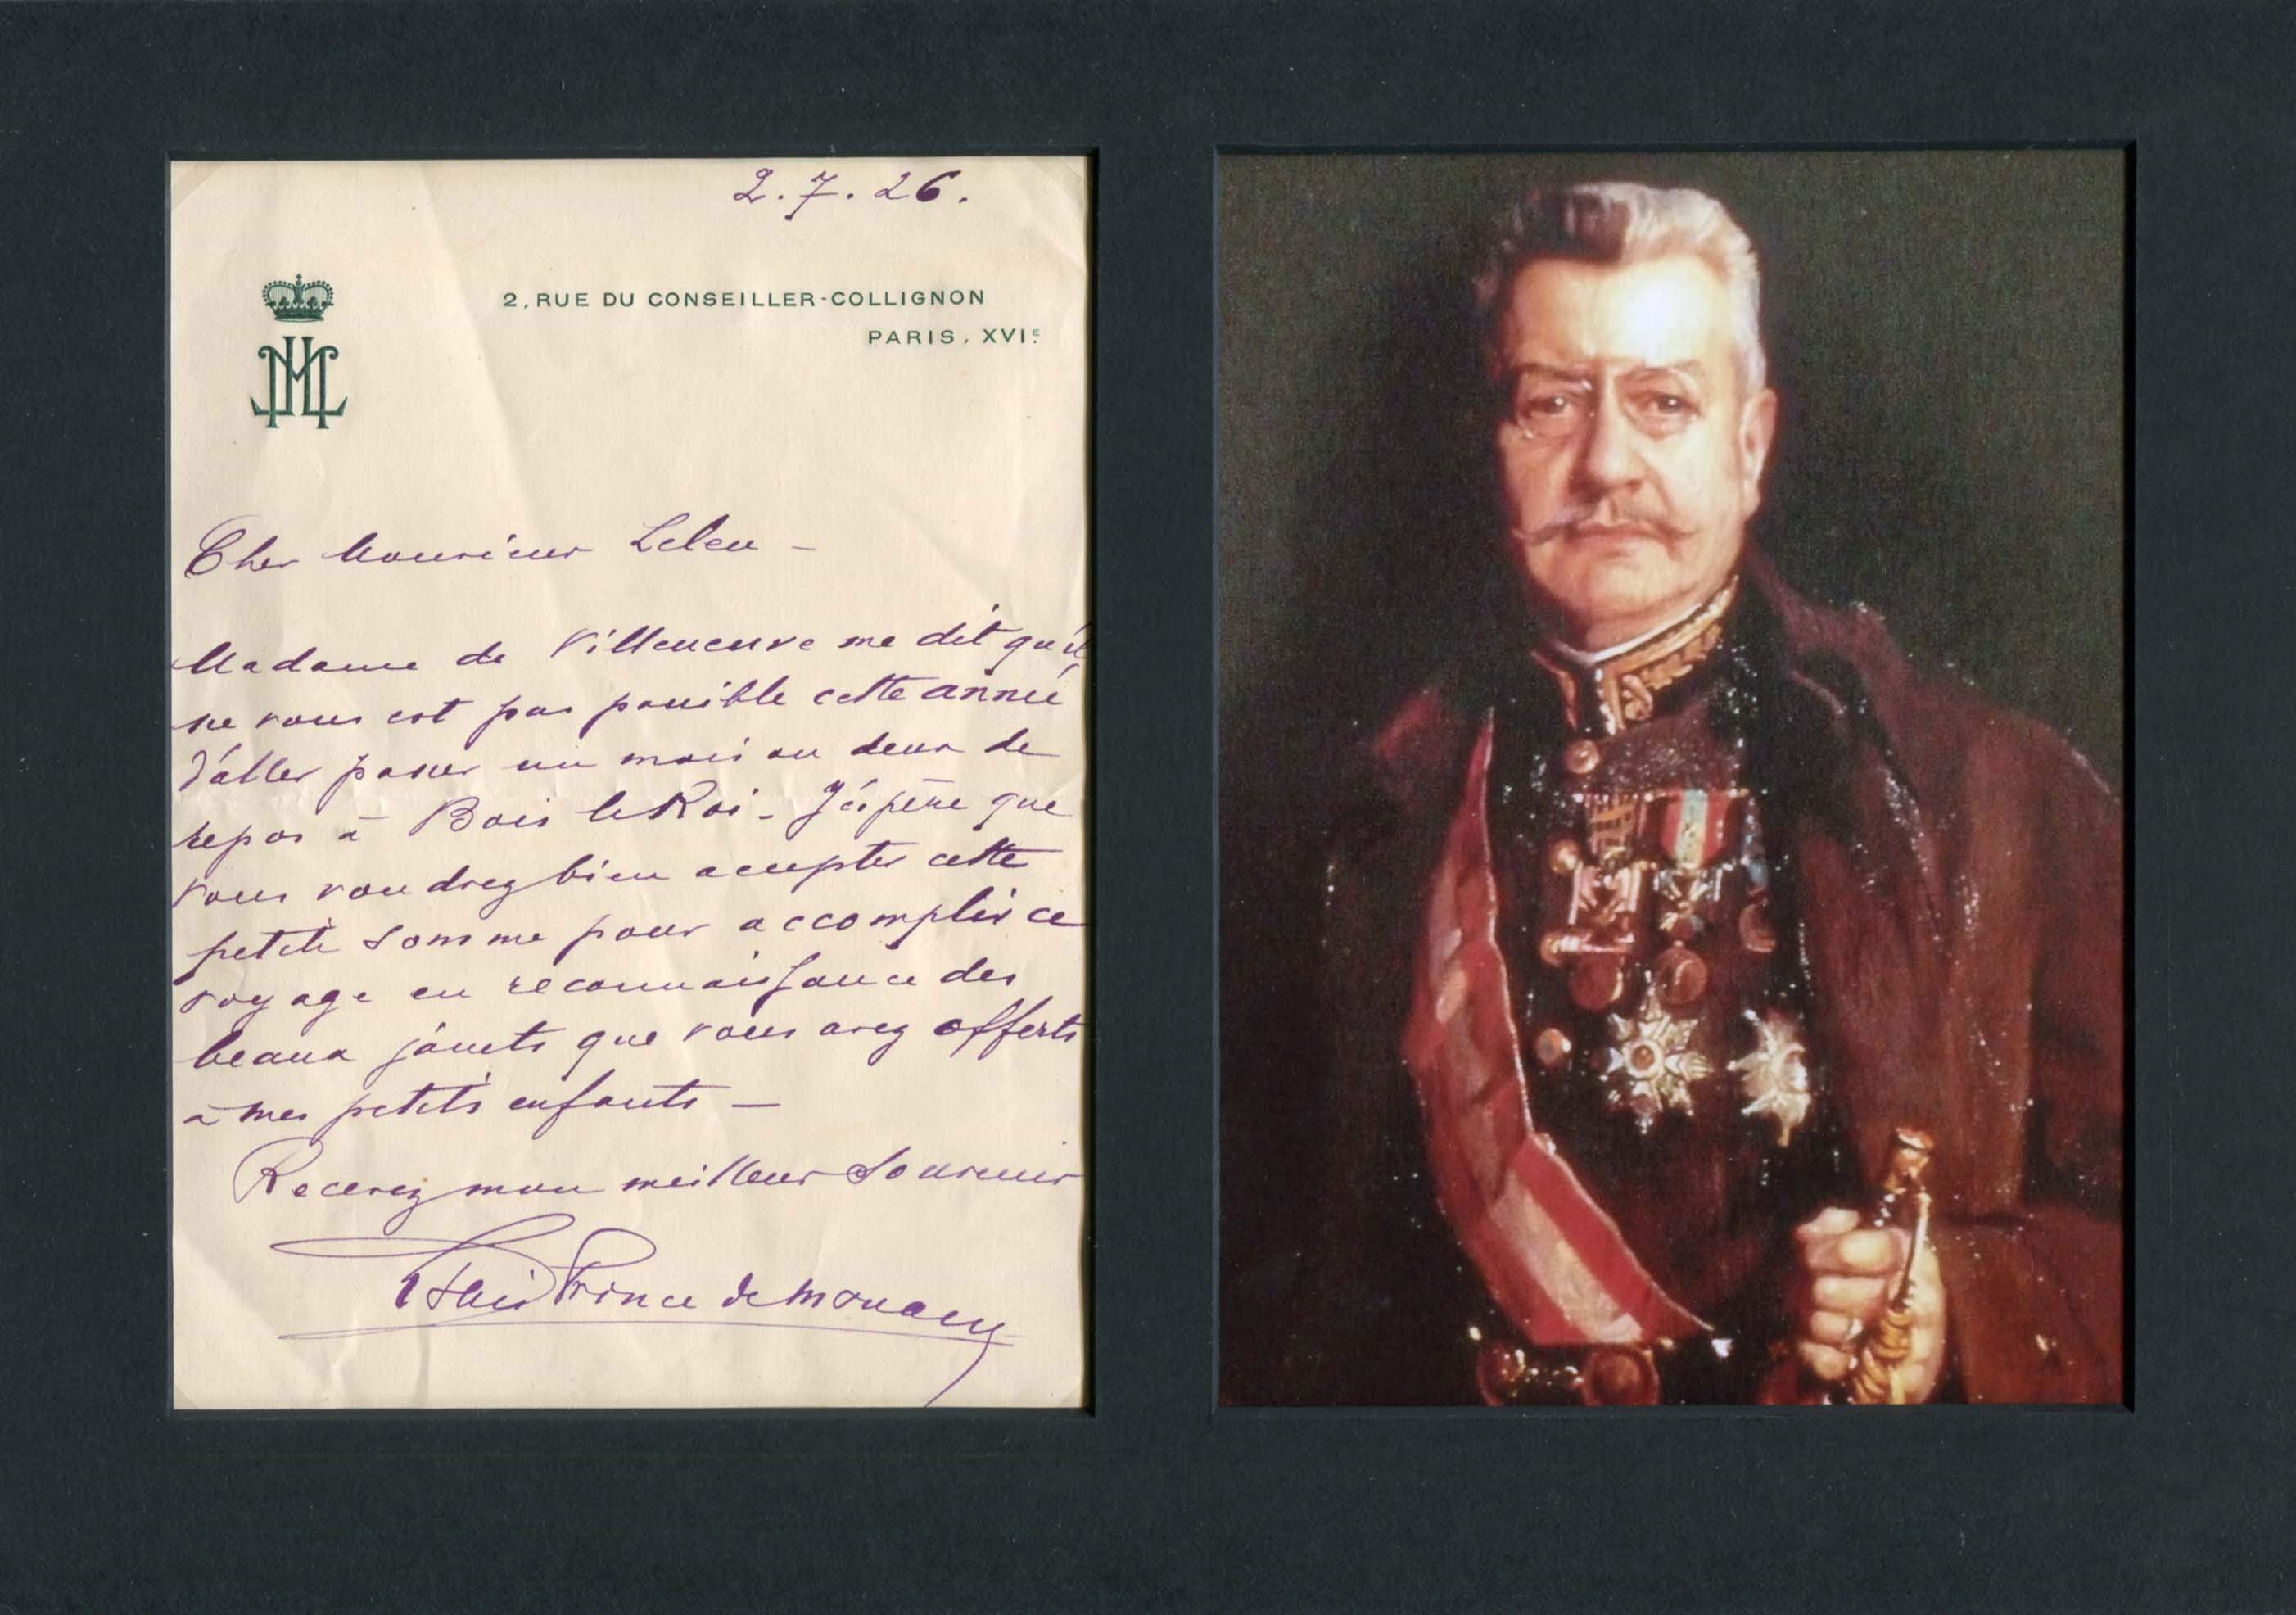 2.7.26.
2, RUE DU CONSEILLER-COLLIGNON
PARIS, XVIE
Cher Monsieur Leleu -
Madame de Villeneuve me dit qu'il
ne vous est pas possible cette année
d'aller passer un mois ou deux de
repos à Bois le Roi - J'éspère que
vous voudrez bien accepter cette
petite somme pour accomplir ce
voyage en reconnaissance des
beaux jouets que vous avez offerts
à mes petits enfants -
Recevez mon meilleur souvenir
Louis Prince de Monaco